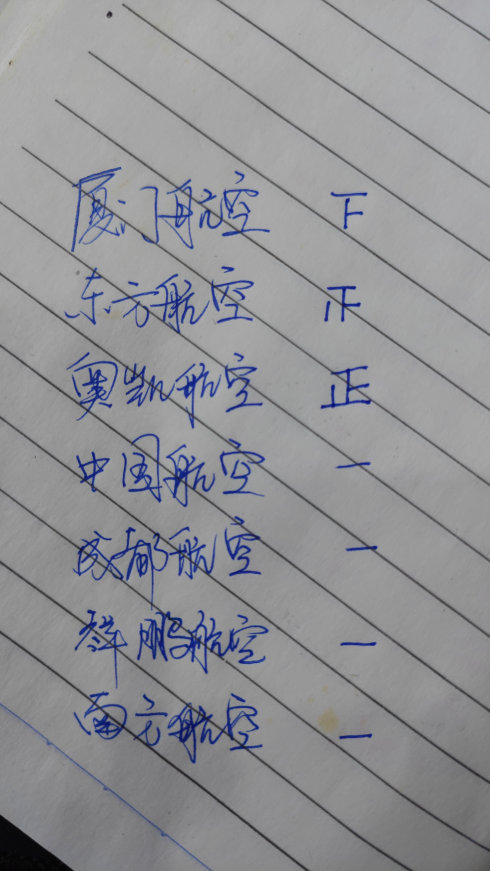 厦门航空 下
东方航空 正
奥凯航空 正
中国航空 一
成都航空 一
祥鹏航空 一
南方航空 一